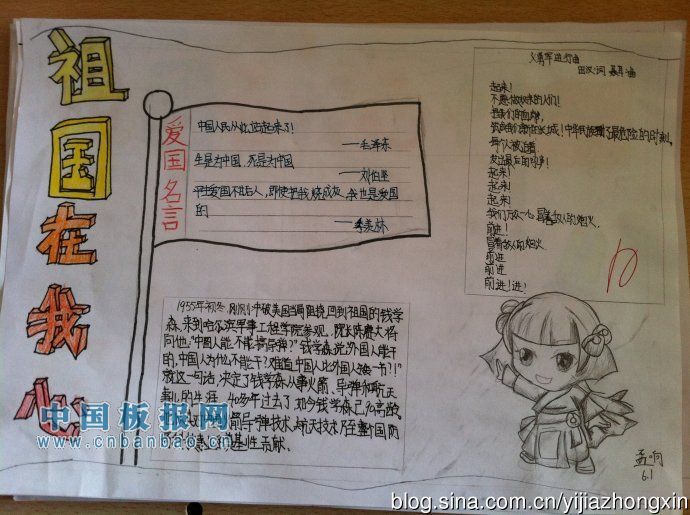 祖国在我心
爱国名言
中国人民从此站起来了!
——毛泽东
生是为中国,死是为中国
——刘伯坚
平生爱国不甘后人,即使把我烧成灰,我也是爱国
的
——李美林
义勇军进行曲
田汉:词 聂耳:曲
起来!
不愿做奴隶的人们!
把我们的血肉,
筑成我们新的长城!中华民族到了最危险的时刻,
每个人被迫着
发出最后的吼声!
起来!
起来!
起来
我们万众一心,冒着敌人的炮火,
前进!
冒着敌人的炮火
前进
前进
前进!进!
1955年初冬,刚刚冲破美国当局阻挠,回到祖国的钱学
森,来到哈尔滨军事工程学院参观,院长陈赓大将
问他:"中国人能不能搞导弹?"钱学森说:"外国人能干
的,中国人为什么不能干?难道中国人比外国人矮一节!!"
就这一句话,决定了钱学森从事火箭、导弹和航天
事业的生涯,40多年过去了,如今钱学森已
箭导弹技术,航天技术乃至整个国防
奠基性贡献.
孟响
6.1
中国板报网
www.cnbanbao.cn
blog.sina.com.cn/yijiazhongxin